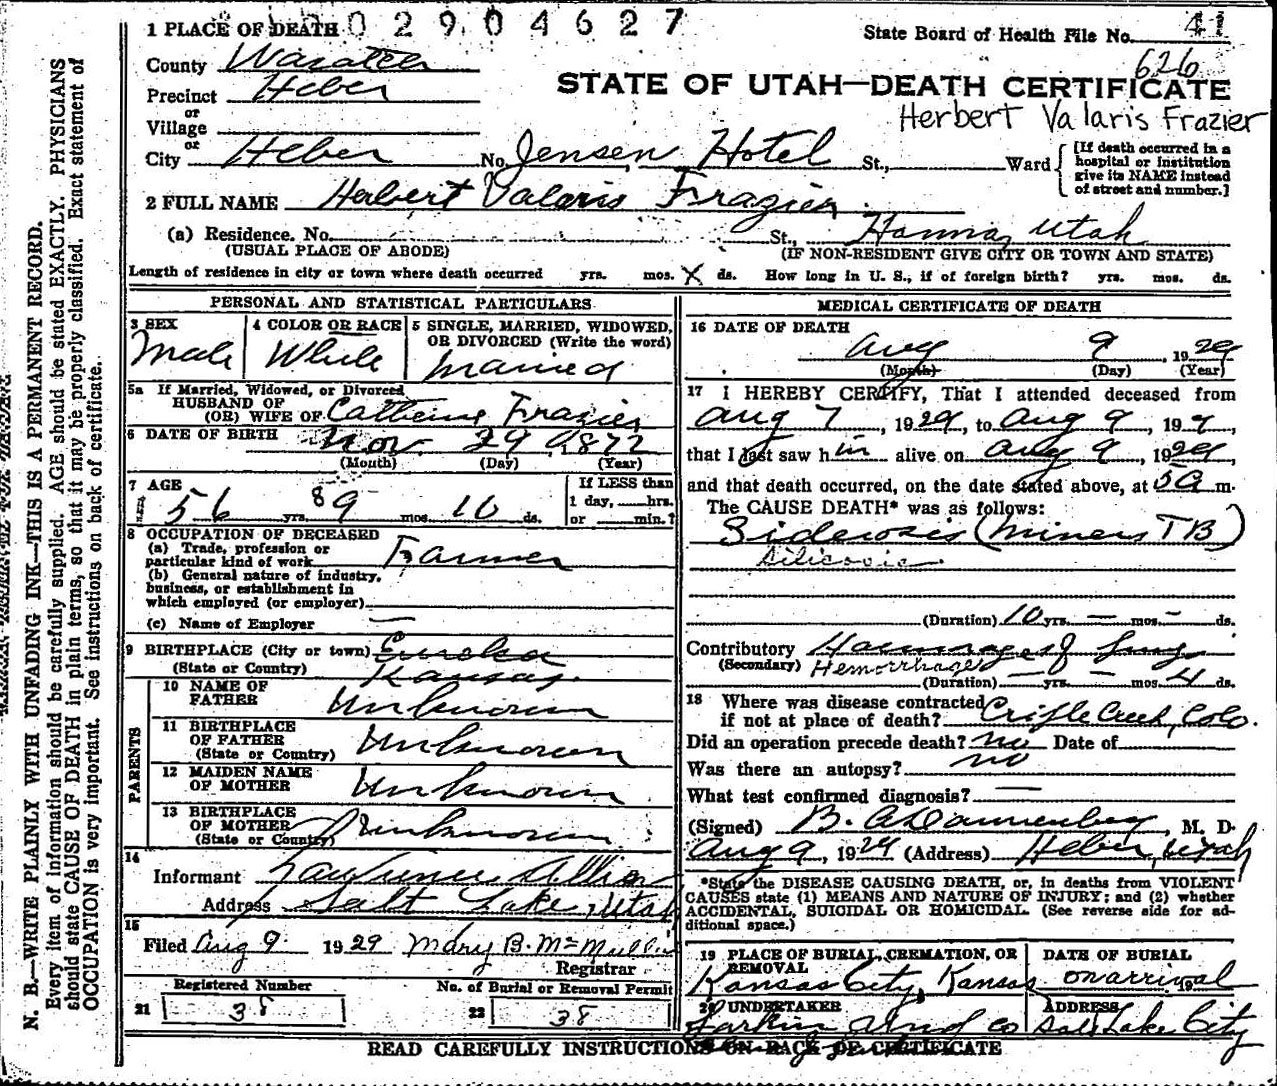 1 PLACE OF DEATH 0 2 9 0 4 6 2 7
State Board of Health File No. 41
626
County Wasatch
Precinct Heber
or
Village
or
City Heber No. Jensen Hotel St., Ward
[If death occurred in a hospital or institution give its NAME instead of street and number.]
STATE OF UTAH—DEATH CERTIFICATE
Herbert Valaris Frazier
2 FULL NAME Herbert Valaris Frazier
(a) Residence. No. St., Hanna, Utah
(USUAL PLACE OF ABODE) (IF NON-RESIDENT GIVE CITY OR TOWN AND STATE)
Length of residence in city or town where death occurred yrs. mos. X ds. How long in U. S., if of foreign birth? yrs. mos. ds.
PERSONAL AND STATISTICAL PARTICULARS
3 SEX 4 COLOR OR RACE 5 SINGLE, MARRIED, WIDOWED, OR DIVORCED (Write the word)
Male White Married
5a If Married, Widowed, or Divorced
HUSBAND OF
(OR) WIFE OF Catherine Frazier
6 DATE OF BIRTH Nov 29 1872
(Month) (Day) (Year)
7 AGE If LESS than
56 yrs. 8 9 mos. 10 ds. 1 day, hrs.
or min.?
8 OCCUPATION OF DECEASED
(a) Trade, profession or
particular kind of work Farmer
(b) General nature of industry,
business, or establishment in
which employed (or employer)
(c) Name of Employer —
9 BIRTHPLACE (City or town) Eureka
(State or Country) Kansas.
PARENTS
10 NAME OF
FATHER Unknown
11 BIRTHPLACE
OF FATHER Unknown
(State or Country)
12 MAIDEN NAME
OF MOTHER Unknown
13 BIRTHPLACE
OF MOTHER Unknown
(State or Country)
14
Informant
Address Salt Lake, Utah
15
Filed Aug 9 1929 Mary B. McMullin
Registrar
Registered Number No. of Burial or Removal Permit
21 38 22 38
MEDICAL CERTIFICATE OF DEATH
16 DATE OF DEATH
Aug 9, 1929
(Month) (Day) (Year)
17 I HEREBY CERTIFY, That I attended deceased from
Aug 7, 1929, to Aug 9, 19 9,
that I last saw him alive on Aug 9, 1929,
and that death occurred, on the date stated above, at 5 a m.
The CAUSE DEATH* was as follows:
Siderosis (Miners TB)
(Duration) 10 yrs. — mos. — ds.
Contributory of Lungs
(Secondary) Hemorrhages
(Duration) — yrs. — mos. 4 ds.
18 Where was disease contracted
if not at place of death? Cripple Creek, Colo.
Did an operation precede death? no Date of
Was there an autopsy? no
What test confirmed diagnosis? —
(Signed) B. A. Dannenberg, M. D.
Aug 9, 1929 (Address) Heber, Utah
*State the DISEASE CAUSING DEATH, or, in deaths from VIOLENT
CAUSES state (1) MEANS AND NATURE OF INJURY; and (2) whether
ACCIDENTAL, SUICIDAL OR HOMICIDAL. (See reverse side for ad-
ditional space.)
19 PLACE OF BURIAL, CREMATION, OR REMOVAL DATE OF BURIAL
Kansas City, Kansas on arrival 19
20 UNDERTAKER ADDRESS
Larkin and Co Salt Lake City
READ CAREFULLY INSTRUCTIONS ON BACK OF CERTIFICATE
N. B.—WRITE PLAINLY WITH UNFADING INK—THIS IS A PERMANENT RECORD.
Every item of information should be carefully supplied. AGE should be stated EXACTLY. PHYSICIANS
should state CAUSE OF DEATH in plain terms, so that it may be properly classified. Exact statement of
OCCUPATION is very important. See instructions on back of certificate.